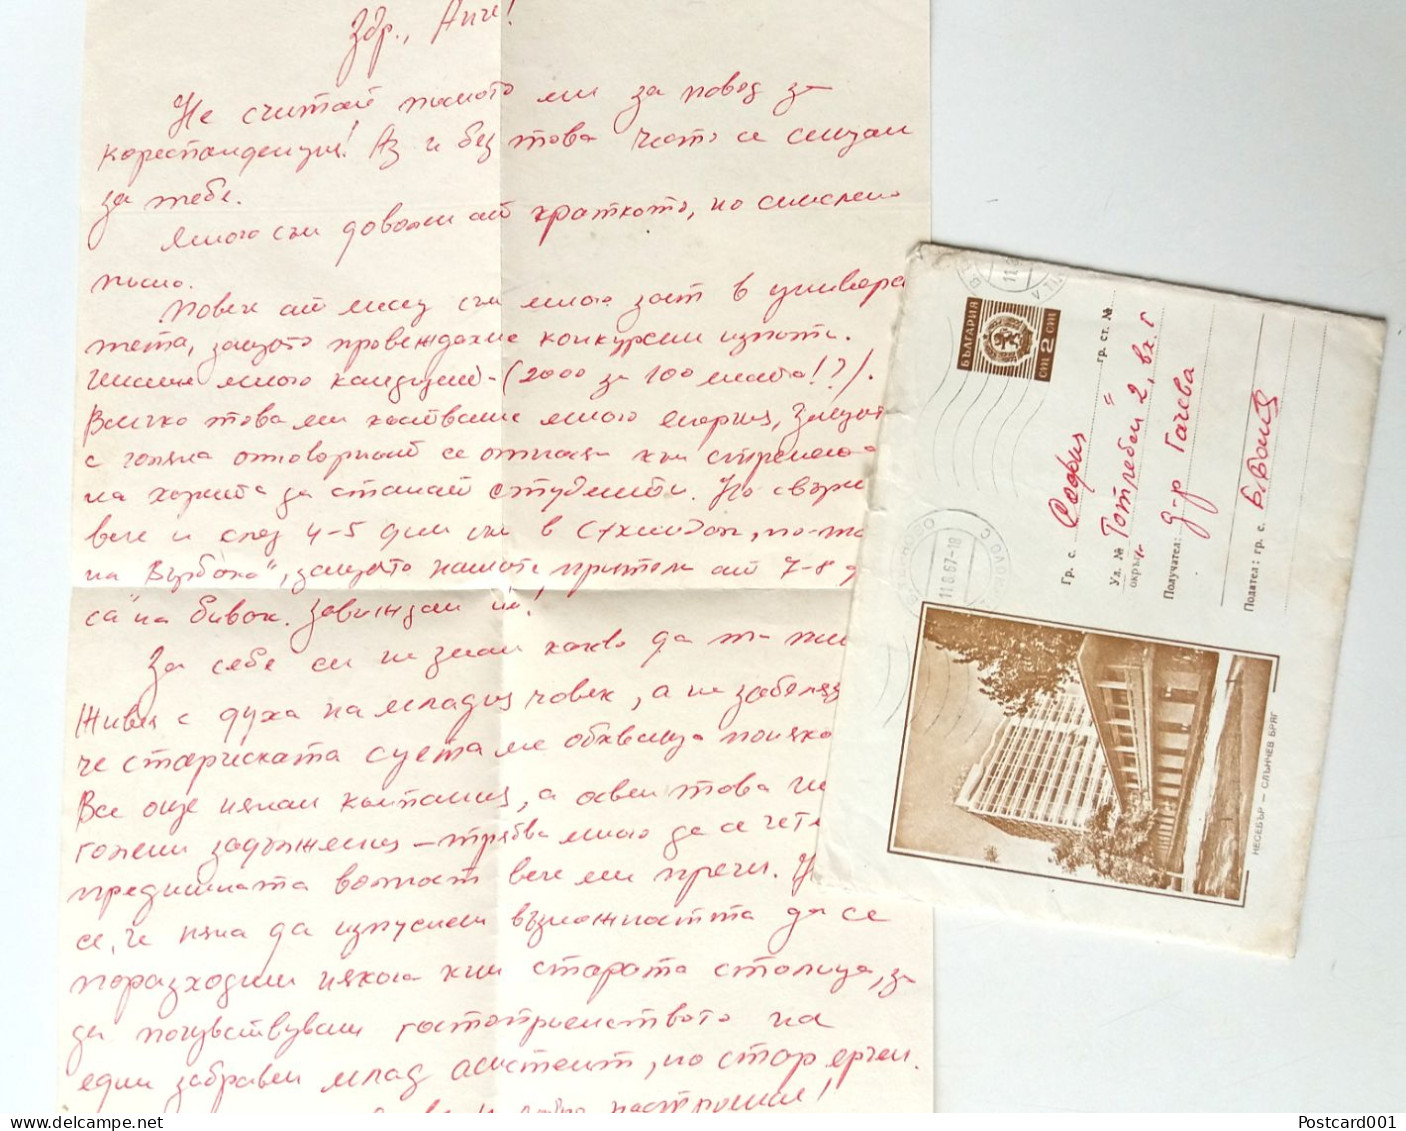 Здр., Анче!
Не считай писмото ми за повод за
кореспонденция! Аз и без това често се сещам
за тебе.
Много съм доволен от краткото, но смислено
писмо.
Повече от месец съм много зает в универси
тета, защото провеждахме конкурсни изпити.
Имаше много кандидати - (2000 за 100 места!?).
Всичко това ми костваше много енергия, защото
с голяма отговорност се отнасям към стремежа
на хората да станат студенти. Но свърши
вече и след 4-5 дни съм в
на Върбака", защото нашите приятели от 7-8 д
са на бивак. Завиждам им!
За себе си не знам какво да ти
Живея с духа на младия човек, а не забеляз
че старческата суета ме обхваща поняко
Все още нямам компания, а освен това
големи задължения - трябва много да се чете
предишната волност вече ми пречи.
се, че няма да изпуснеш възможността да се
поразходиш някога към старата столица, за
да почувстваш гостоприемството на
един забравен млад асистент, но стар ерген.
настроение!
БЪЛГАРИЯ
2 СТ
СТ
11.8.67-18
Гр. с. София
гр. ст. №
Ул. № "Готчебеш" 2, вх. Г
окръг
Получател: д-р Гачева
Подател: гр. с. Б. Вания
НЕСЕБЪР — СЛЪНЧЕВ БРЯГ
Postcard001